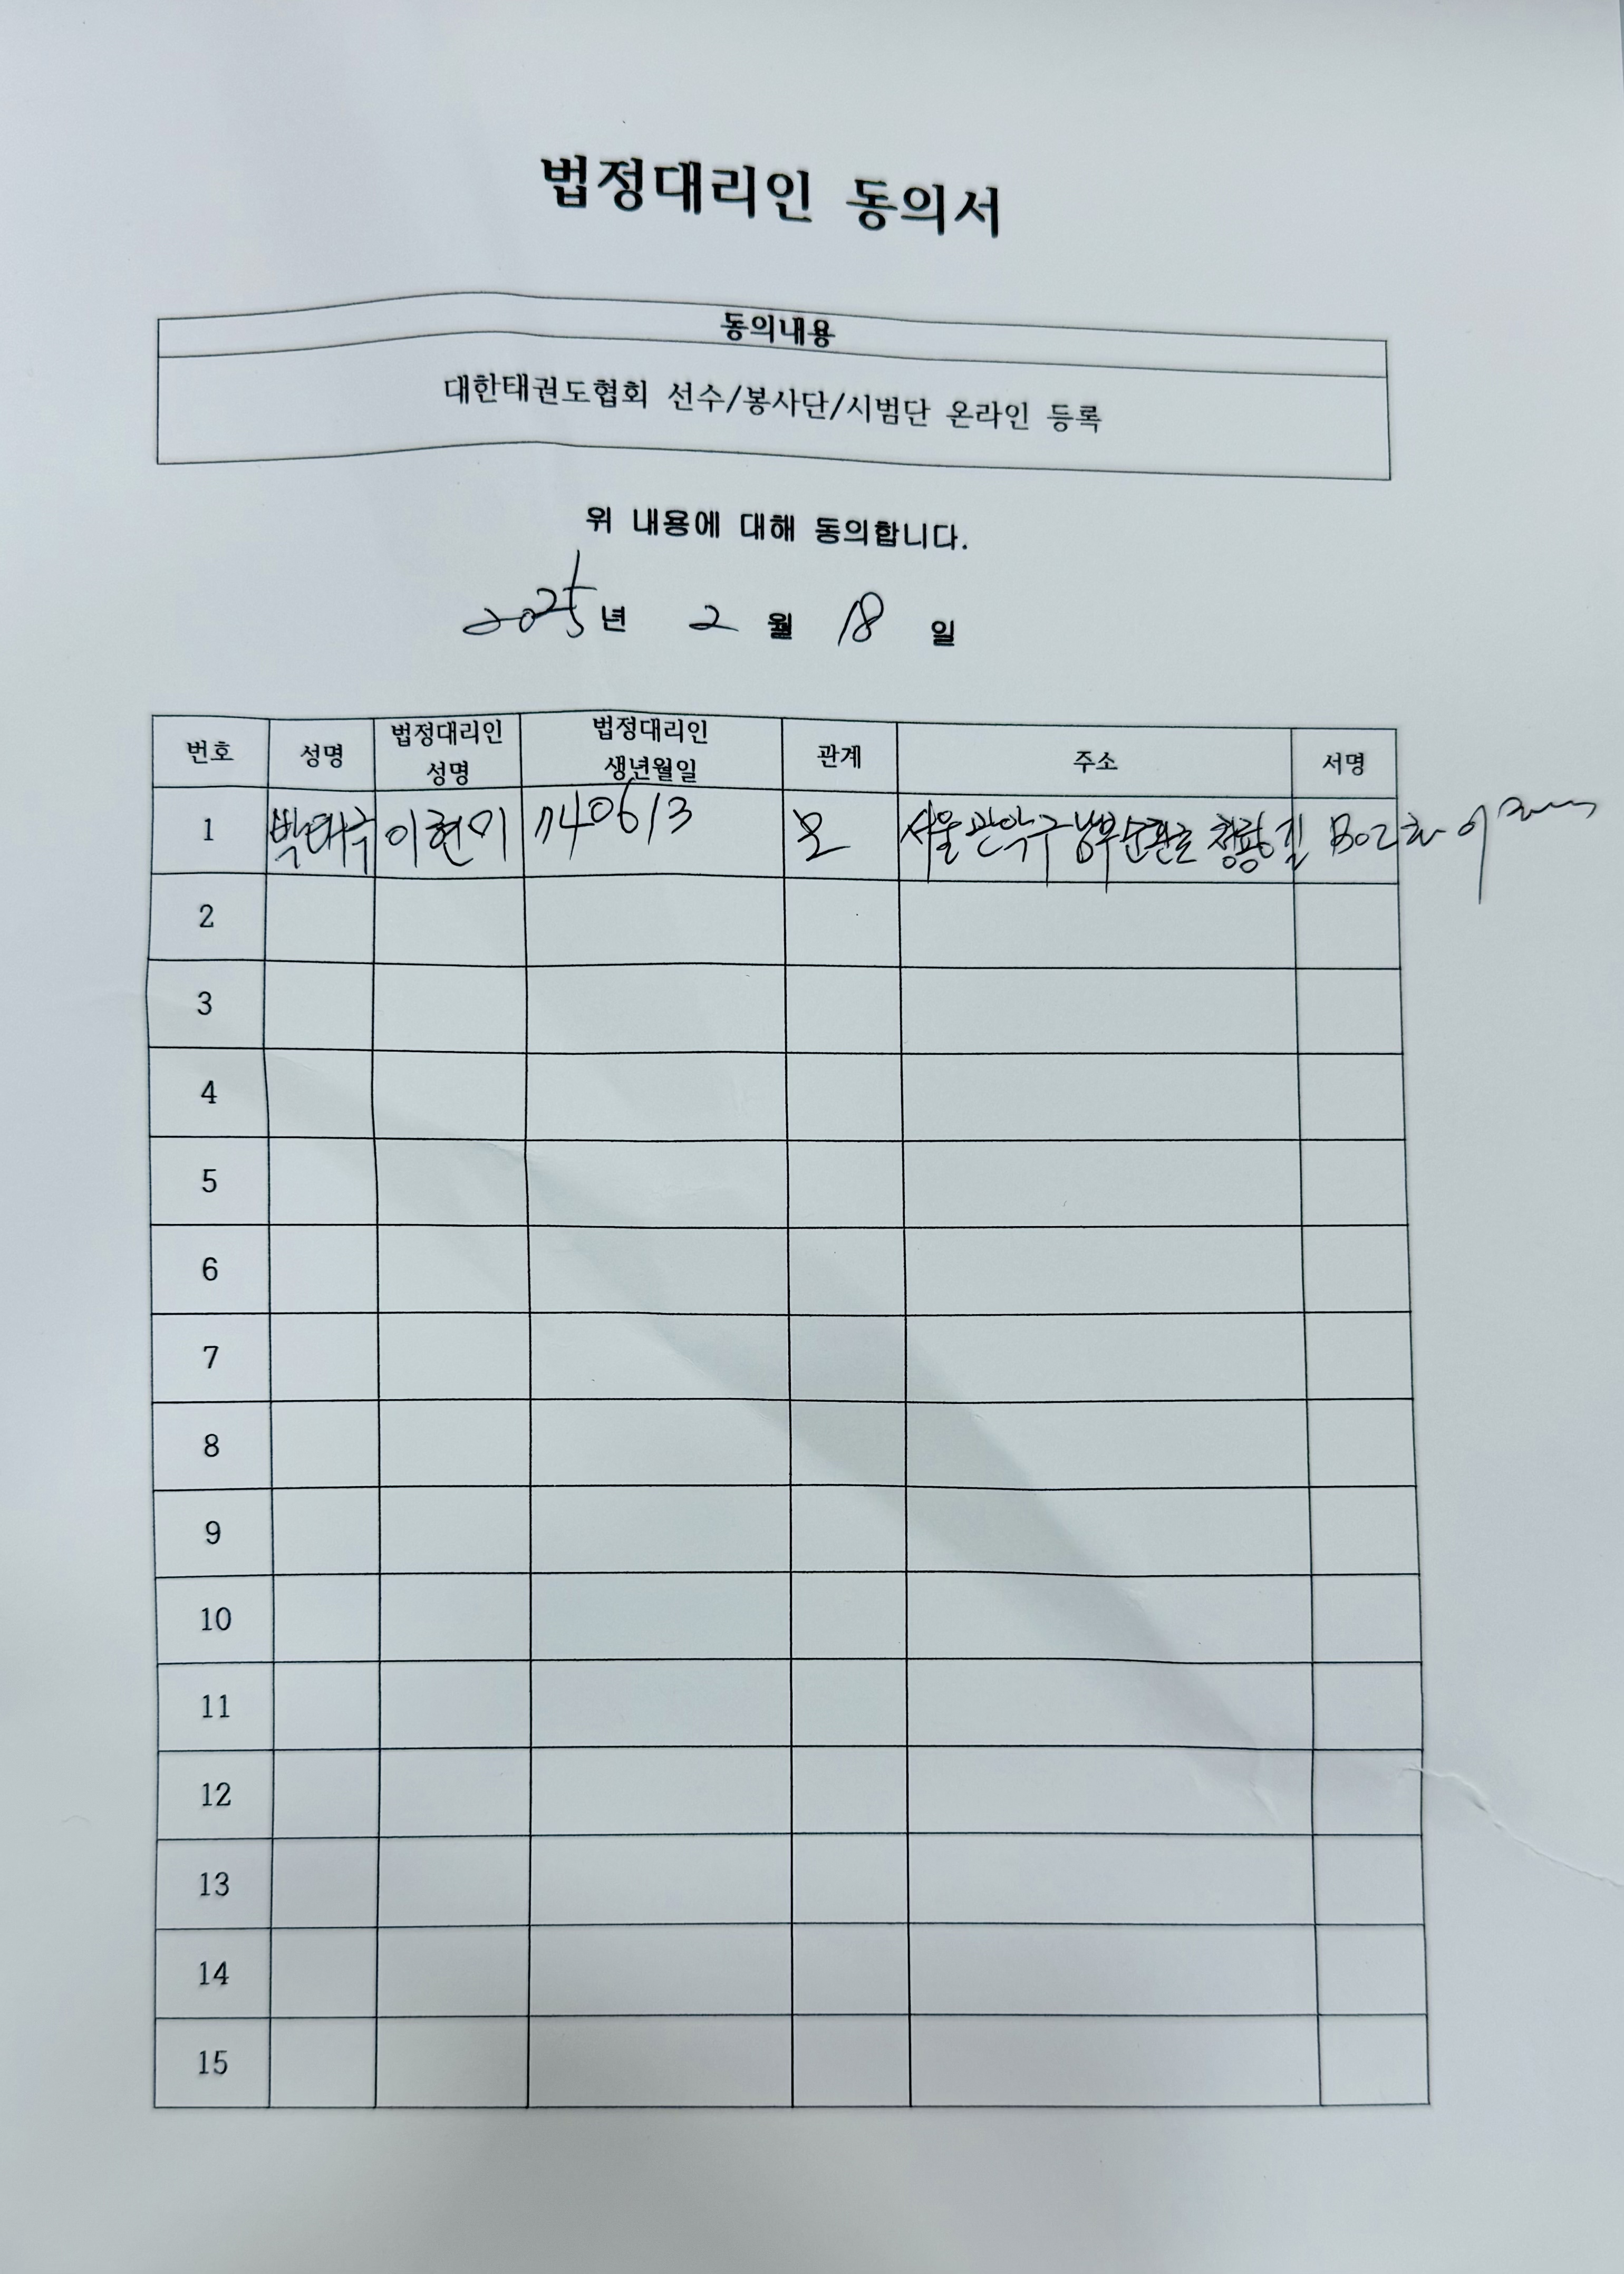 법정대리인 동의서
동의내용
대한태권도협회 선수/봉사단/시범단 온라인 등록
위 내용에 대해 동의합니다.
2025년 2 월 18 일
번호 성명 법정대리인 성명 법정대리인 생년월일 관계 주소 서명
1 이현미 740613 모 서울 관악구 남부순환로 청룡길 B02호
2
3
4
5
6
7
8
9
10
11
12
13
14
15